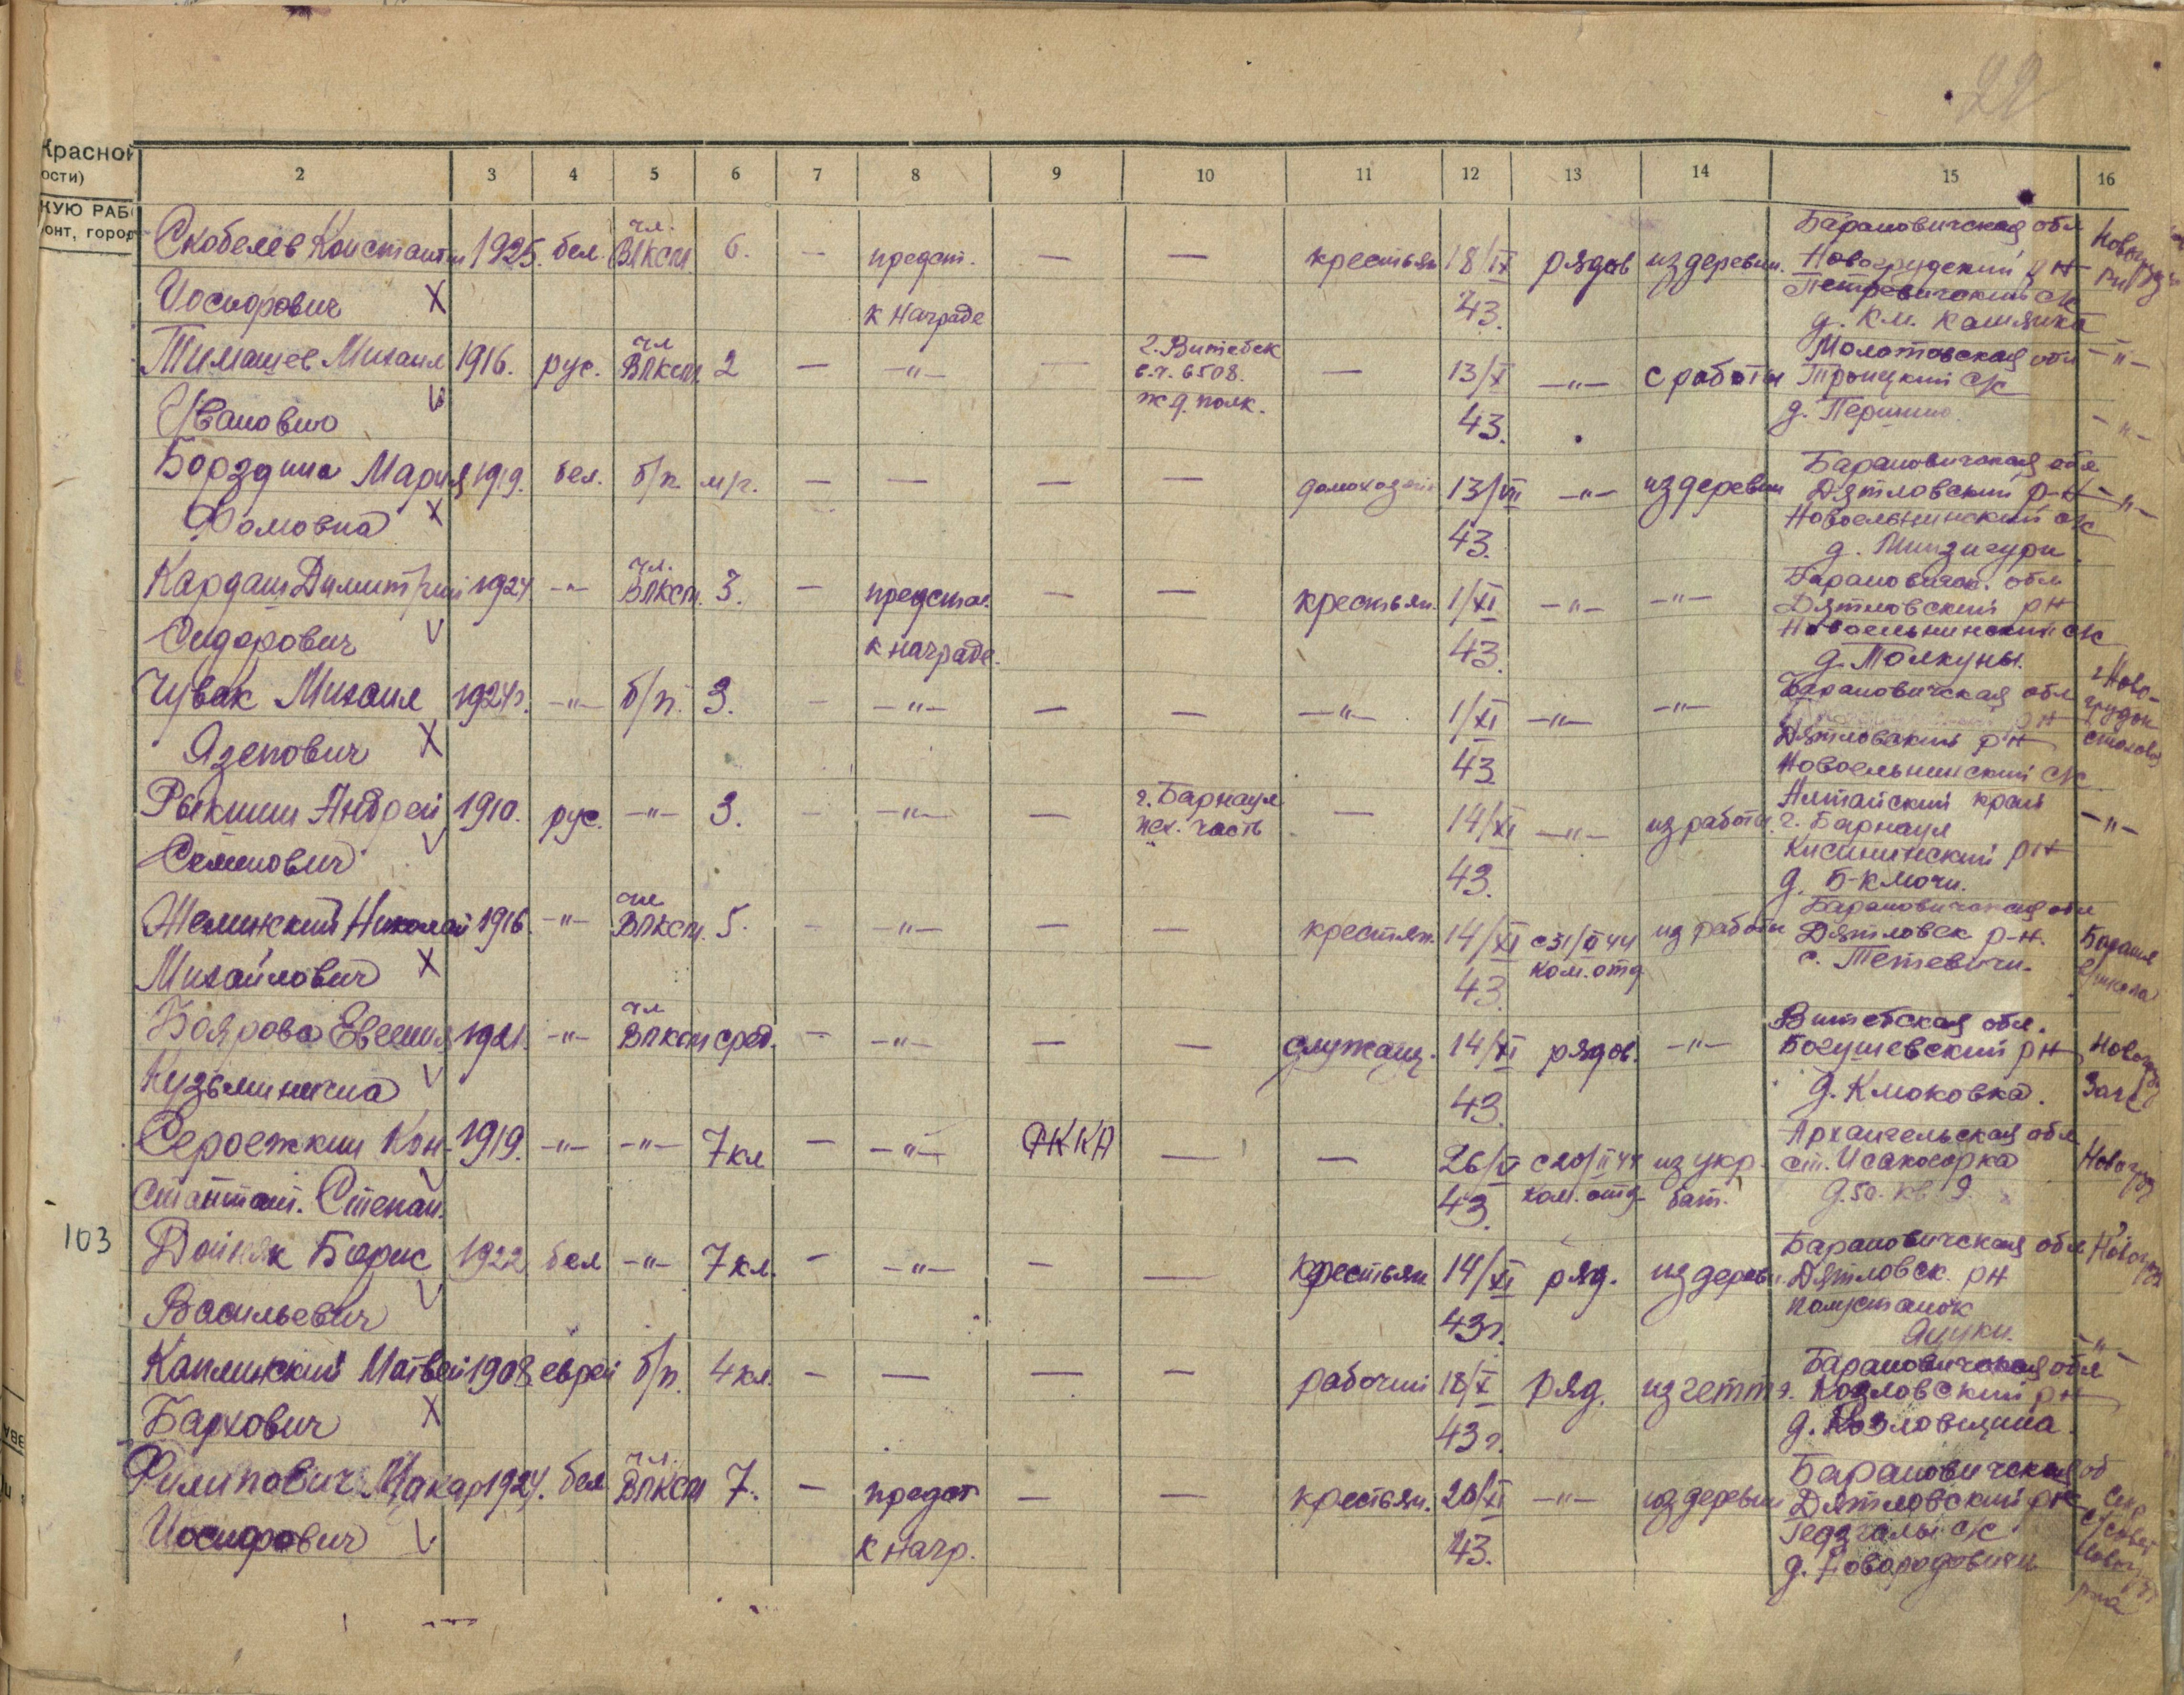 22
Красной
ости)
КУЮ РАБ
онт, город
2 3 4 5 6 7 8 9 10 11 12 13 14 15 16
чл. Барановичская обл
Скобелев Константин 1925. бел. ВЛКСМ 6. — предст. — — крестьян 18/IX рядов из деревни. Новогрудский рн
Иосифович X к награде 43. Петревичский с/с
д. Км. Кашянка
Тимашев Михаил 1916. рус. чл ВЛКСМ. 2 — -"- — г. Витебск — 13/X -"- с работы Молотовская обл -"-
в.ч. 6508. Троицкий с/с
Иванович V ж.д. полк. 43. д. Першино.
-"-
Борздына Мария 1919. бел. б/п. м/г. — — — — домохозяй 13/VII -"- из деревни Барановичская обл
Дятловский р-н -"-
Фомовна X 43. Новоельнинский с/с
д.
Кардаш Димитрий 1924 -"- чл. ВЛКСМ. 3. — предстов. — — крестьян. 1/XI -"- -"- Барановичск. обл
Дятловский рн
Сидорович V к награде. 43. Новоельнинский с/с
д. Молкуны.
Чувак Михаил 1924г. -"- б/п. 3. — -"- — — -"- 1/XI -"- -"- Барановичская обл г. Ново-
рн грудок
Язепович X 43 Дятловский рн столов
Новоельнинский с/с
Рыкшин Андрей 1910. рус. -"- 3. — -"- — г. Барнаул — 14/XI -"- из работы. Алтайский край -"-
пех. часть г. Барнаул
Семенович V 43. рн
д. Б-Ключи.
Желинский Николай 1916. -"- чл ВЛКСМ. 5. — -"- — — крестьян. 14/XI с 31/II 44 из работы Барановичская обл
Дятловск р-н.
Михайлович X 43 ком. отд с. Тетевичи.
Боярова Евгения 1921. -"- чл ВЛКСМ сред. — -"- — — служащ. 14/XI рядов. -"- Витебская обл.
Богушевский рн
Кузьминична V 43. д. Клюковка.
Сероежкин Кон- 1919. -"- -"- 7 кл — -"- РККА — — 26/V с 20/II 44 из укр. Архангельская обл
ст. Исакогорка
стантин. Степан. V 43. ком. отд бат. д. 50. кв. 9.
103
Дойняк Борис 1922 бел -"- 7 кл. — -"- — — крестьян 14/XI ряд. из деревн. Барановичская обл
Дятловск. рн
Васильевич V 43г. полустанок
Яцуки.
Каплинский Матвей 1908. еврей б/п. 4 кл. — — — — рабочий 18/X ряд. из гетто. Барановичская обл -"-
Козловский рн
Бархович X 43г. д. Козловщина.
Филипович Макар 1924. бел чл. ВЛКСМ 7. — предст — — крестьян. 20/XI -"- из деревни Барановичская об
Дятловский рн
Иосифович V к нагр. 43. Гедзголы с/с.
д. Новородовичи